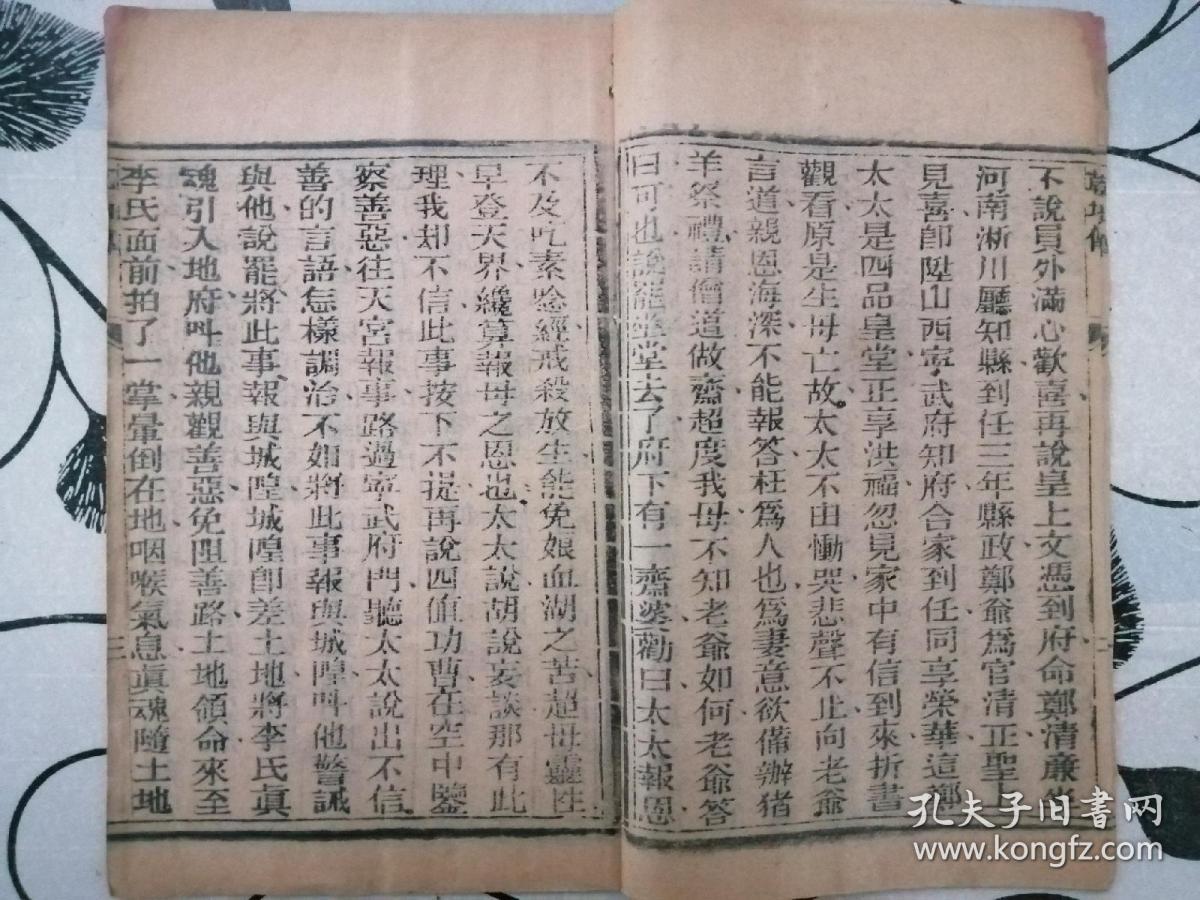 不說員外滿心歡喜再說皇上文憑到府命鄭清廉
河南淅川廳知縣到任三年縣政鄭爺爲官清正聖上
見喜卽陞山西寧武府知府合家到任同享榮華這鄭
太太是四品皇堂正享洪福忽見家中有信到來折書
觀看原是生母亡故太太不由慟哭悲聲不止向老爺
言道親恩海深不能報答枉爲人也爲妻意欲備辦猪
羊祭禮請僧道做齋超度我母不知老爺如何老爺答
曰可也說罷坐堂去了府下有一齋婆勸曰太太報恩
不及吃素唸經戒殺放生能免娘血湖之苦超母靈性
早登天界纔算報母之恩也太太說胡說妄談那有此
理我却不信此事按下不提再說四值功曹在空中鑒
察善惡往天宮報事路過寧武府門聽太太說出不信
善的言語怎樣調治不如將此事報與城隍呌他警誡
與他說罷將此事報與城隍城隍卽差土地將李氏眞
魂引入地府呌他親觀善惡免阻善路土地領命來至
李氏面前拍了一掌暈倒在地咽喉氣息眞魂隨土地
三
孔夫子旧书网
www.kongfz.com